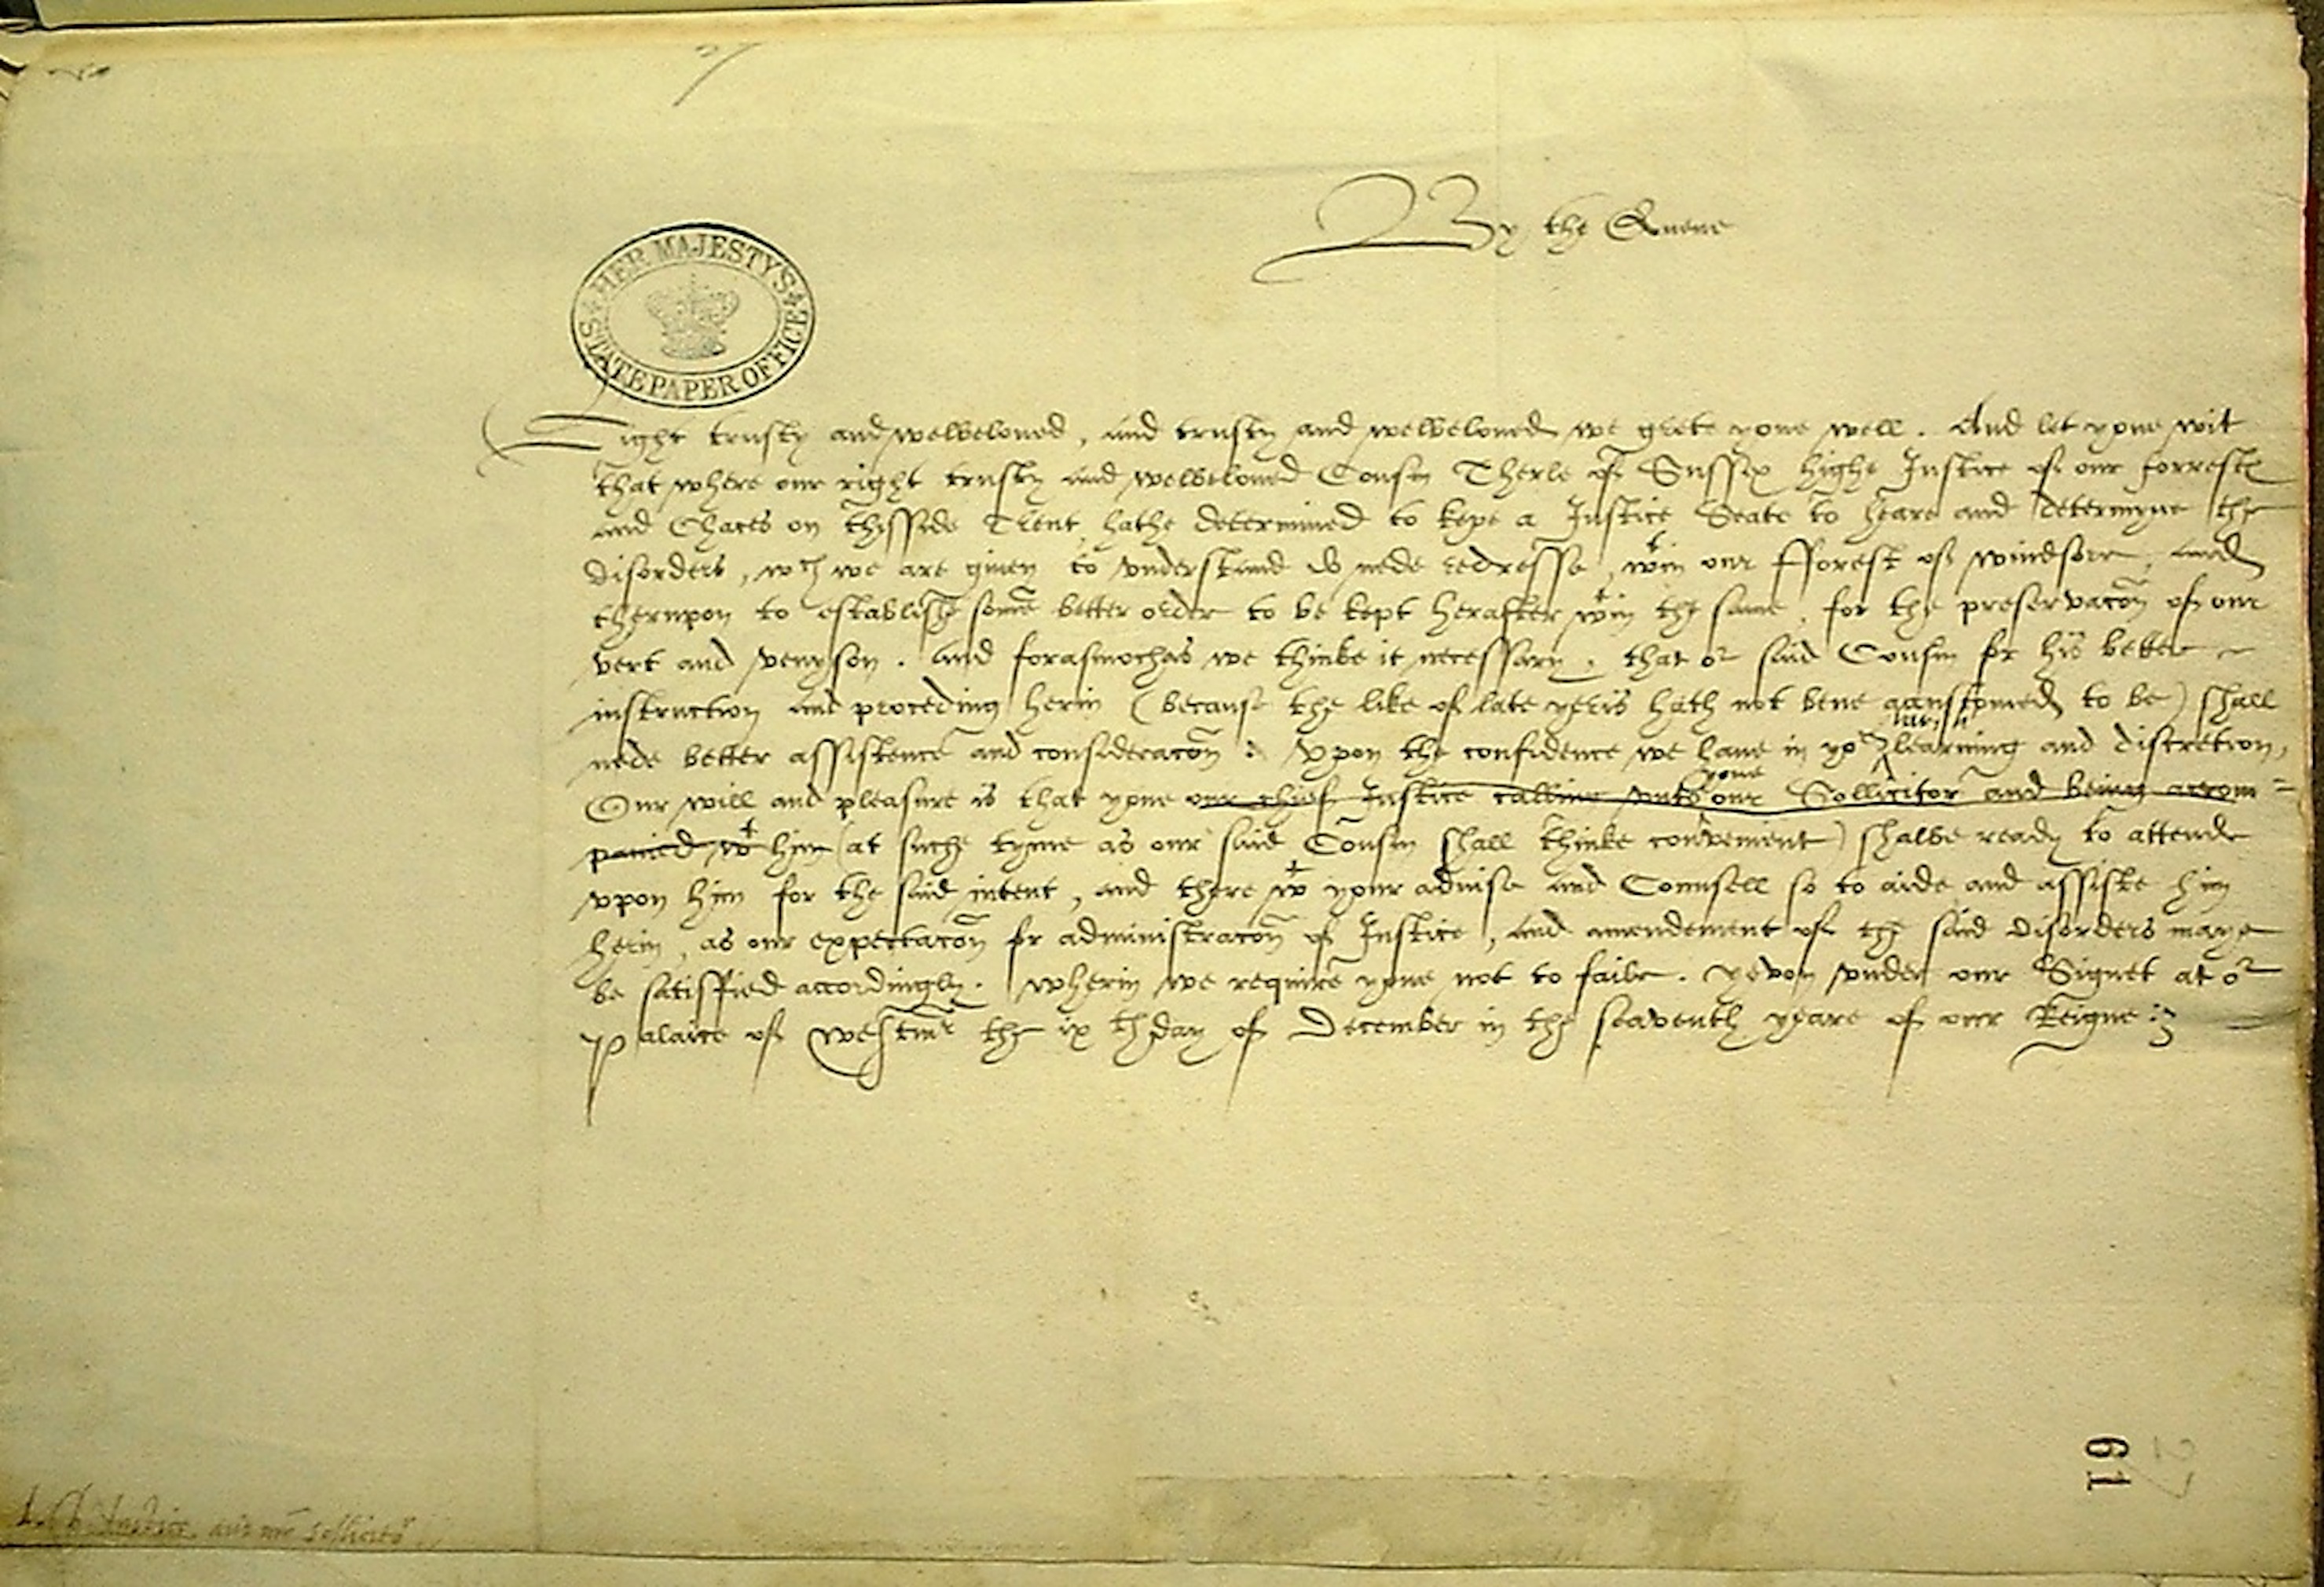 27
By the Quene
HER MAJESTY'S
STATE PAPER OFFICE
Right trusty and welbeloued, and trusty and welbeloued we grete youe well. And let youe wit
that where our right trusty and welbeloued Cousin Therle of Sussex highe Justice of our forrestes
and Chaces on thissyde Trent, hathe determined to kepe a Justice Seate to heare and determyne the
disorders, wch we are giuen to vnderstand do nede redresse, wtin our fforest of windsore, and
therupon to establishe some better order to be kept herafter wtin the same, for the preseruacon of our
vert and venyson. And forasmochas we thinke it necessary, that or said Cousin for his better
instruction and proceding herin (because the like of late yeris hath not bene accustomed to be) shall
nede better assistence and consideracon: Vpon the confidence we haue in yor learning and discretion,
youe
Our will and pleasure is that youe our chief Justice calling vnto our Sollicitor and being accom=
panied wt him (at suche tyme as our said Cousin shall thinke convenient) shalbe ready to attende
vpon him for the said intent, and there wt your aduise and Counsell so to aide and assiste him
herin, as our expectacon for administracon of Justice, and amendement of the said disorders maye
be satisfied accordingly. Wherin we require youe not to faile. Yevon vnder our Signet at or
Palaice of Westmr the ix th day of December in the seaventh yeare of our Reigne:
61
27
L. Ch. Justice and mr sollicitor